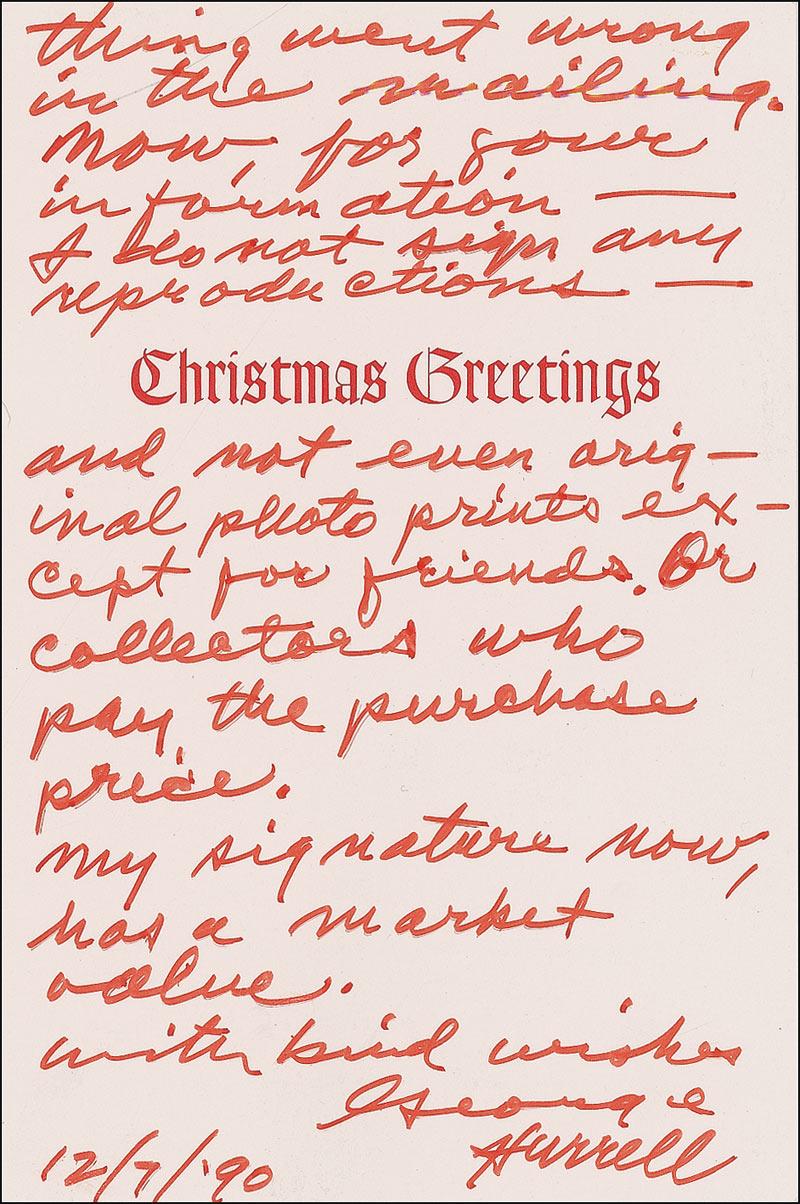 thing went wrong
in the mailing.
Now, for your
information —
I do not sign any
reproductions —
Christmas Greetings
and not even orig—
inal photo prints ex—
cept for friends. Or
collectors who
pay the purchase
price.
My signature now,
has a market
value.
with kind wishes
George
Hurrell
12/7/'90